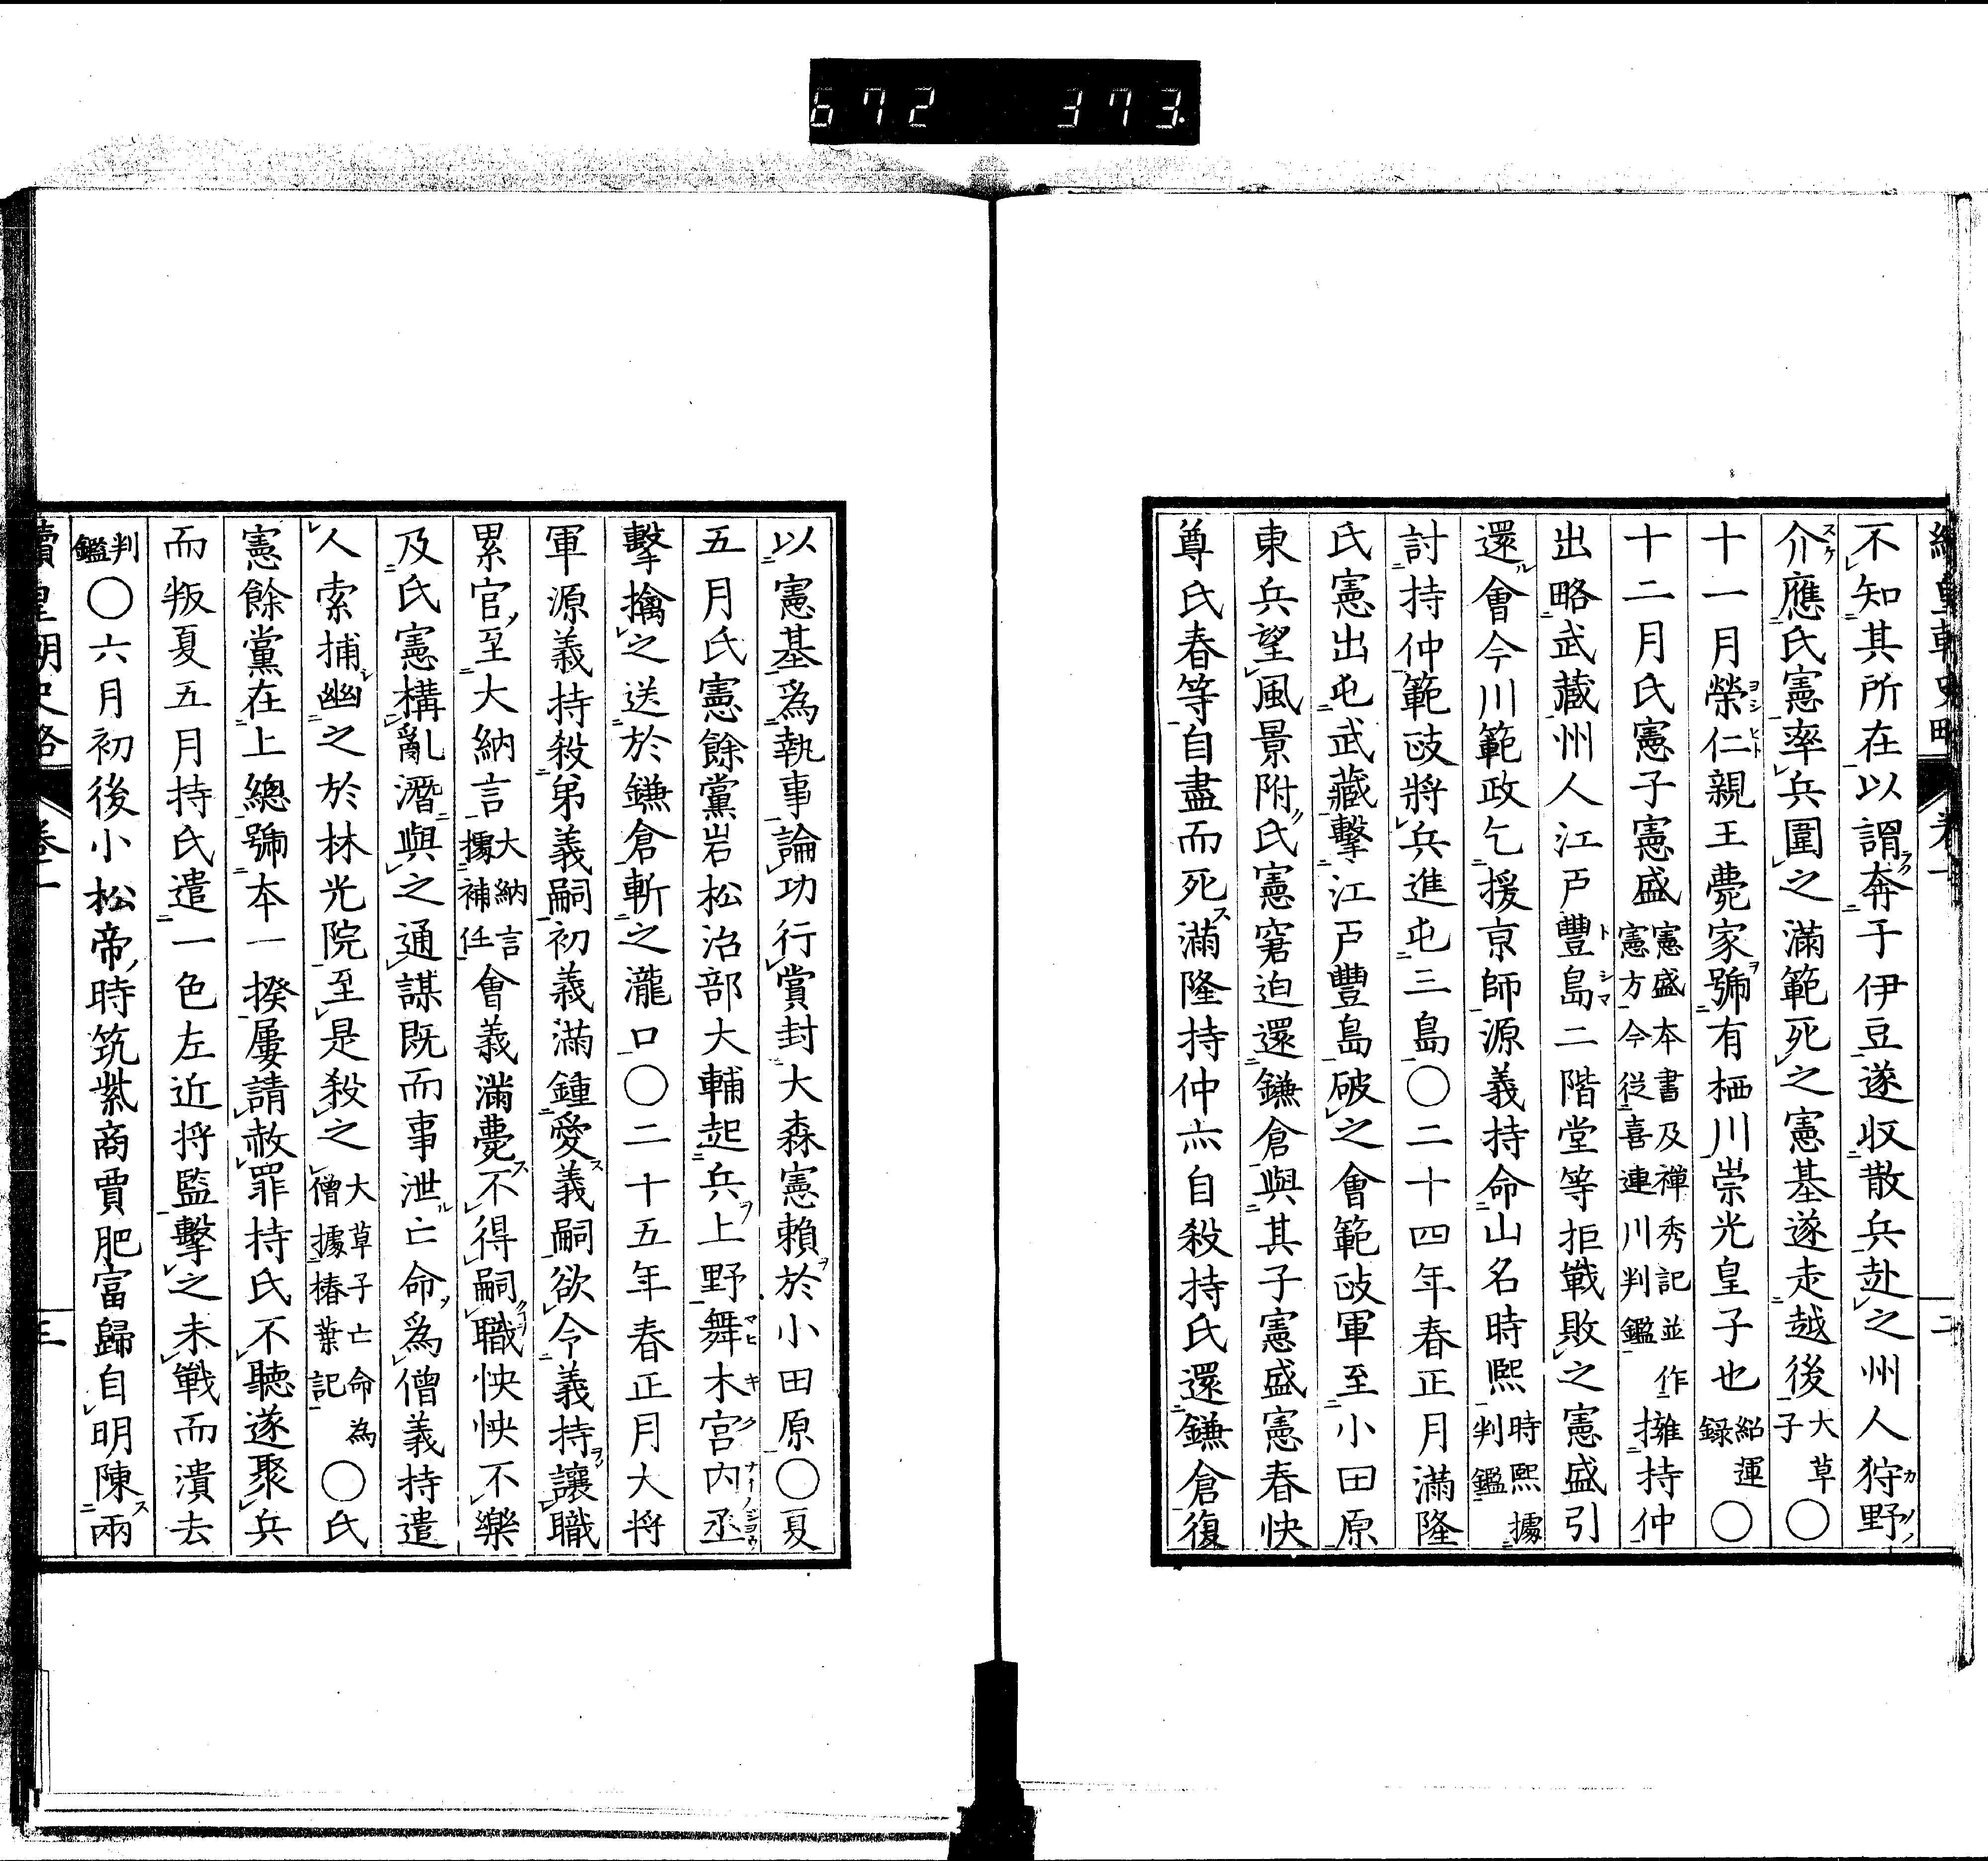 672 373
續皇朝史略 卷一 二
不知其所在以謂奔于伊豆遂收散兵赴之州人狩野
介應氏憲率兵圍之滿範死之憲基遂走越後大草子○
十一月榮仁親王薨家號有栖川崇光皇子也紹運録○
十二月氏憲子憲盛憲盛本書及禪秀記並作憲方今從喜連川判鑑擁持仲
出略武藏州人江戸豐島二階堂等拒戰敗之憲盛引
還會今川範政乞援京師源義持命山名時熙時熙據判鑑
討持仲範政將兵進屯三島○二十四年春正月滿隆
氏憲出屯武藏擊江戸豐島破之會範政軍至小田原
東兵望風景附氏憲窘迫還鎌倉與其子憲盛憲春快
尊氏春等自盡而死滿隆持仲亦自殺持氏還鎌倉復
以憲基爲執事論功行賞封大森憲賴於小田原○夏
五月氏憲餘黨岩松治部大輔起兵上野舞木宮内丞
擊擒之送於鎌倉斬之瀧口○二十五年春正月大將
軍源義持殺弟義嗣初義滿鍾愛義嗣欲令義持讓職
累官至大納言大納言據補任會義滿薨不得嗣職怏怏不樂
及氏憲構亂潛與之通謀既而事泄亡命爲僧義持遣
人索捕幽之於林光院至是殺之大草子亡命為僧據椿葉記○氏
憲餘黨在上總號本一揆屢請赦罪持氏不聽遂聚兵
而叛夏五月持氏遣一色左近将監擊之未戰而潰去
判鑑○六月初後小松帝時筑紫商賈肥富歸自明陳兩
續皇朝史略 卷一 三